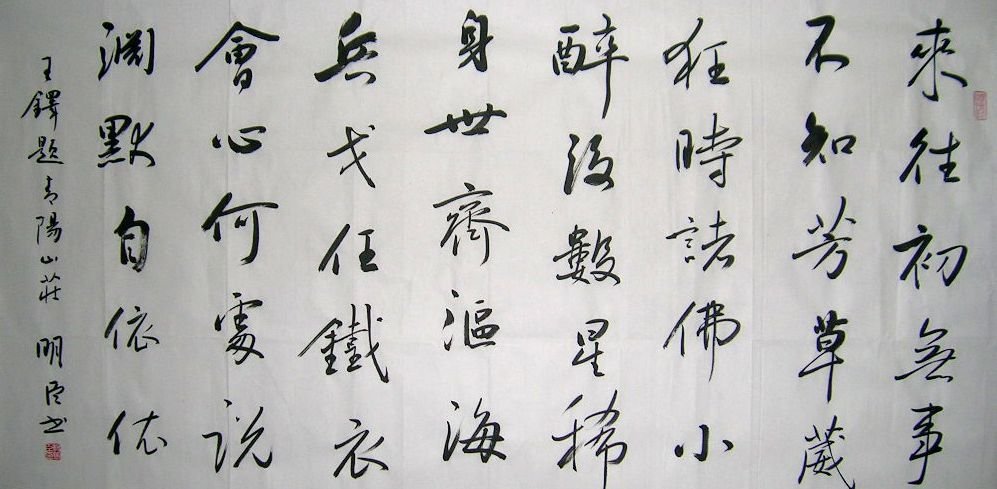 來往初無事
不知芳草葳
狂時諸佛小
醉後數星稀
身世齊漚海
兵戈任鐵衣
會心何處說
淵默自依依
王鐸題青陽山莊 明臣書